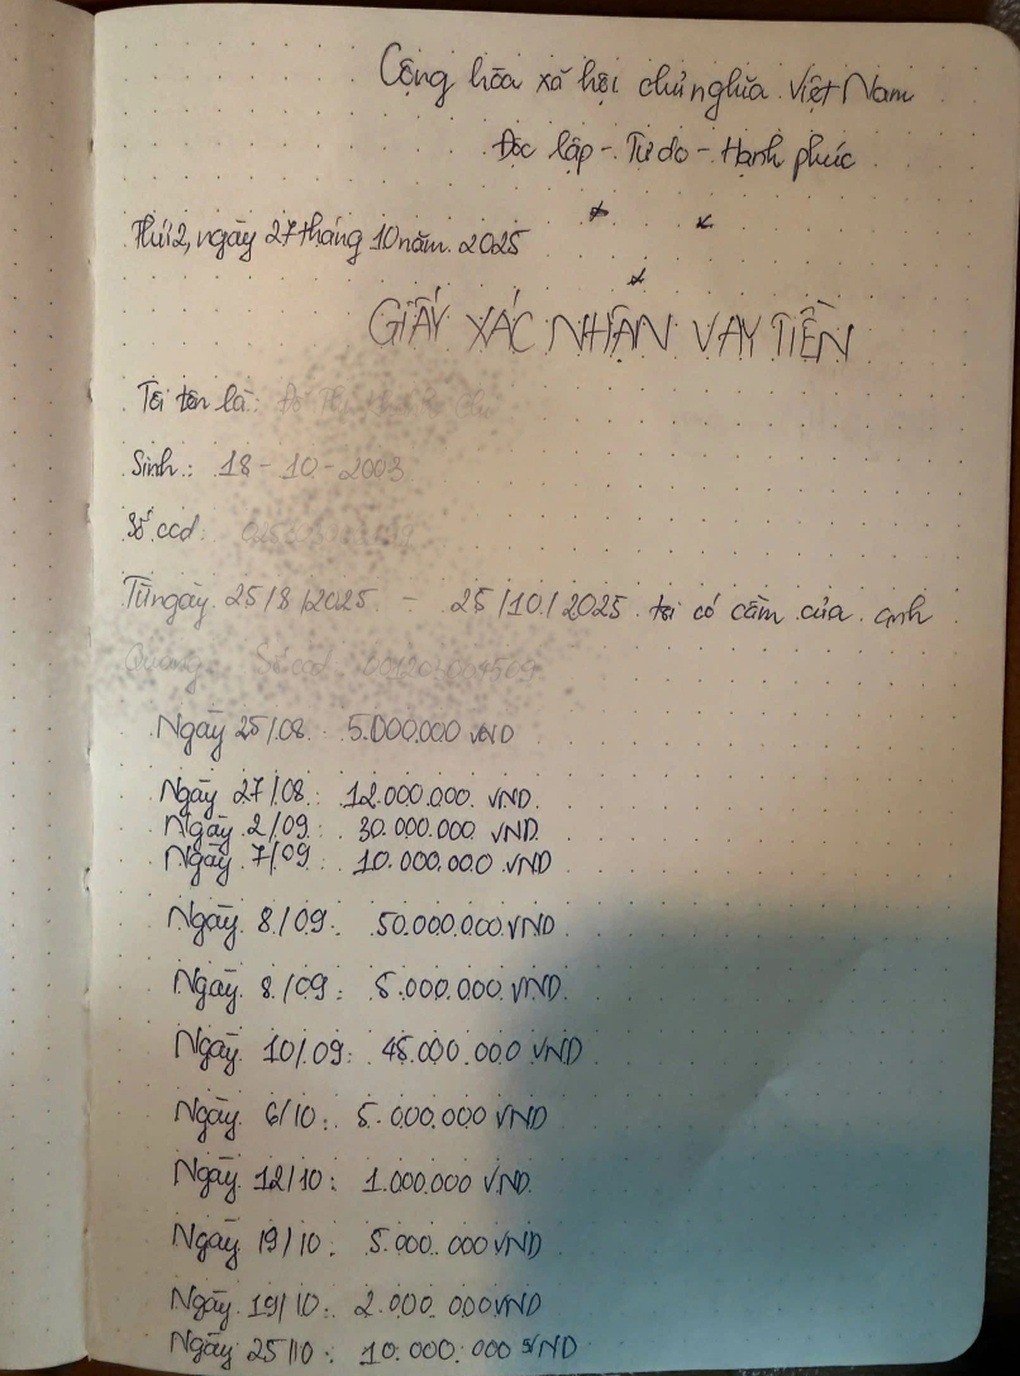 Cộng hòa xã hội chủ nghĩa Việt Nam
Độc lập - Tự do - Hạnh phúc
Thứ 2, ngày 27 tháng 10 năm 2025
GIẤY XÁC NHẬN VAY TIỀN
Tôi tên là:
Sinh: 18 - 10 - 2003
Số ccd:
Từ ngày 25/8/2025 - 25/10/2025 tôi có cầm của anh
Quang Số ccd:
Ngày 25/08: 5.000.000 VND
Ngày 27/08: 12.000.000 VND
Ngày 2/09: 30.000.000 VND
Ngày 7/09: 10.000.000 VND
Ngày 8/09: 50.000.000 VND
Ngày 8/09: 5.000.000 VND
Ngày 10/09: 45.000.000 VND
Ngày 6/10: 5.000.000 VND
Ngày 12/10: 1.000.000 VND
Ngày 19/10: 5.000.000 VND
Ngày 19/10: 2.000.000 VND
Ngày 25/10: 10.000.000 VND